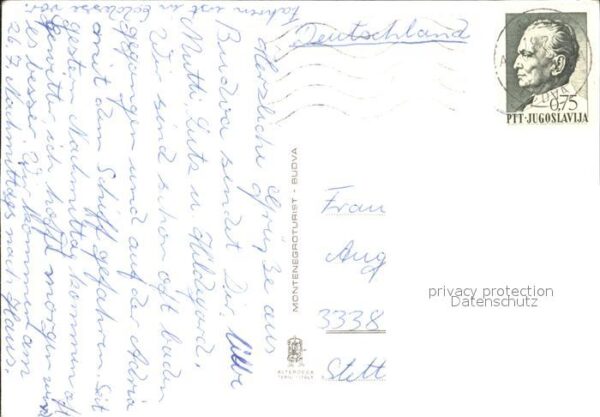 Herzliche Grüße aus
Budva sendet Dir,
Mutti, Lutz u. Hildegard.
Wir sind schon oft baden
gegangen und auf der Adria
mit dem Schiff gefahren. Seit
gestern Nachmittag kommen oft
Gewitter ich hoffe morgen wird
es besser. Wir kommen am
26.7. Nachmittags nach Haus.
Fahren erst in
Deutschland
Frau
Aug
3338
Stett
MONTENEGROTURIST - BUDVA
ALTEROCCA
TERNI ITALY
0,75
PTT-JUGOSLAVIJA
privacy protection
Datenschutz